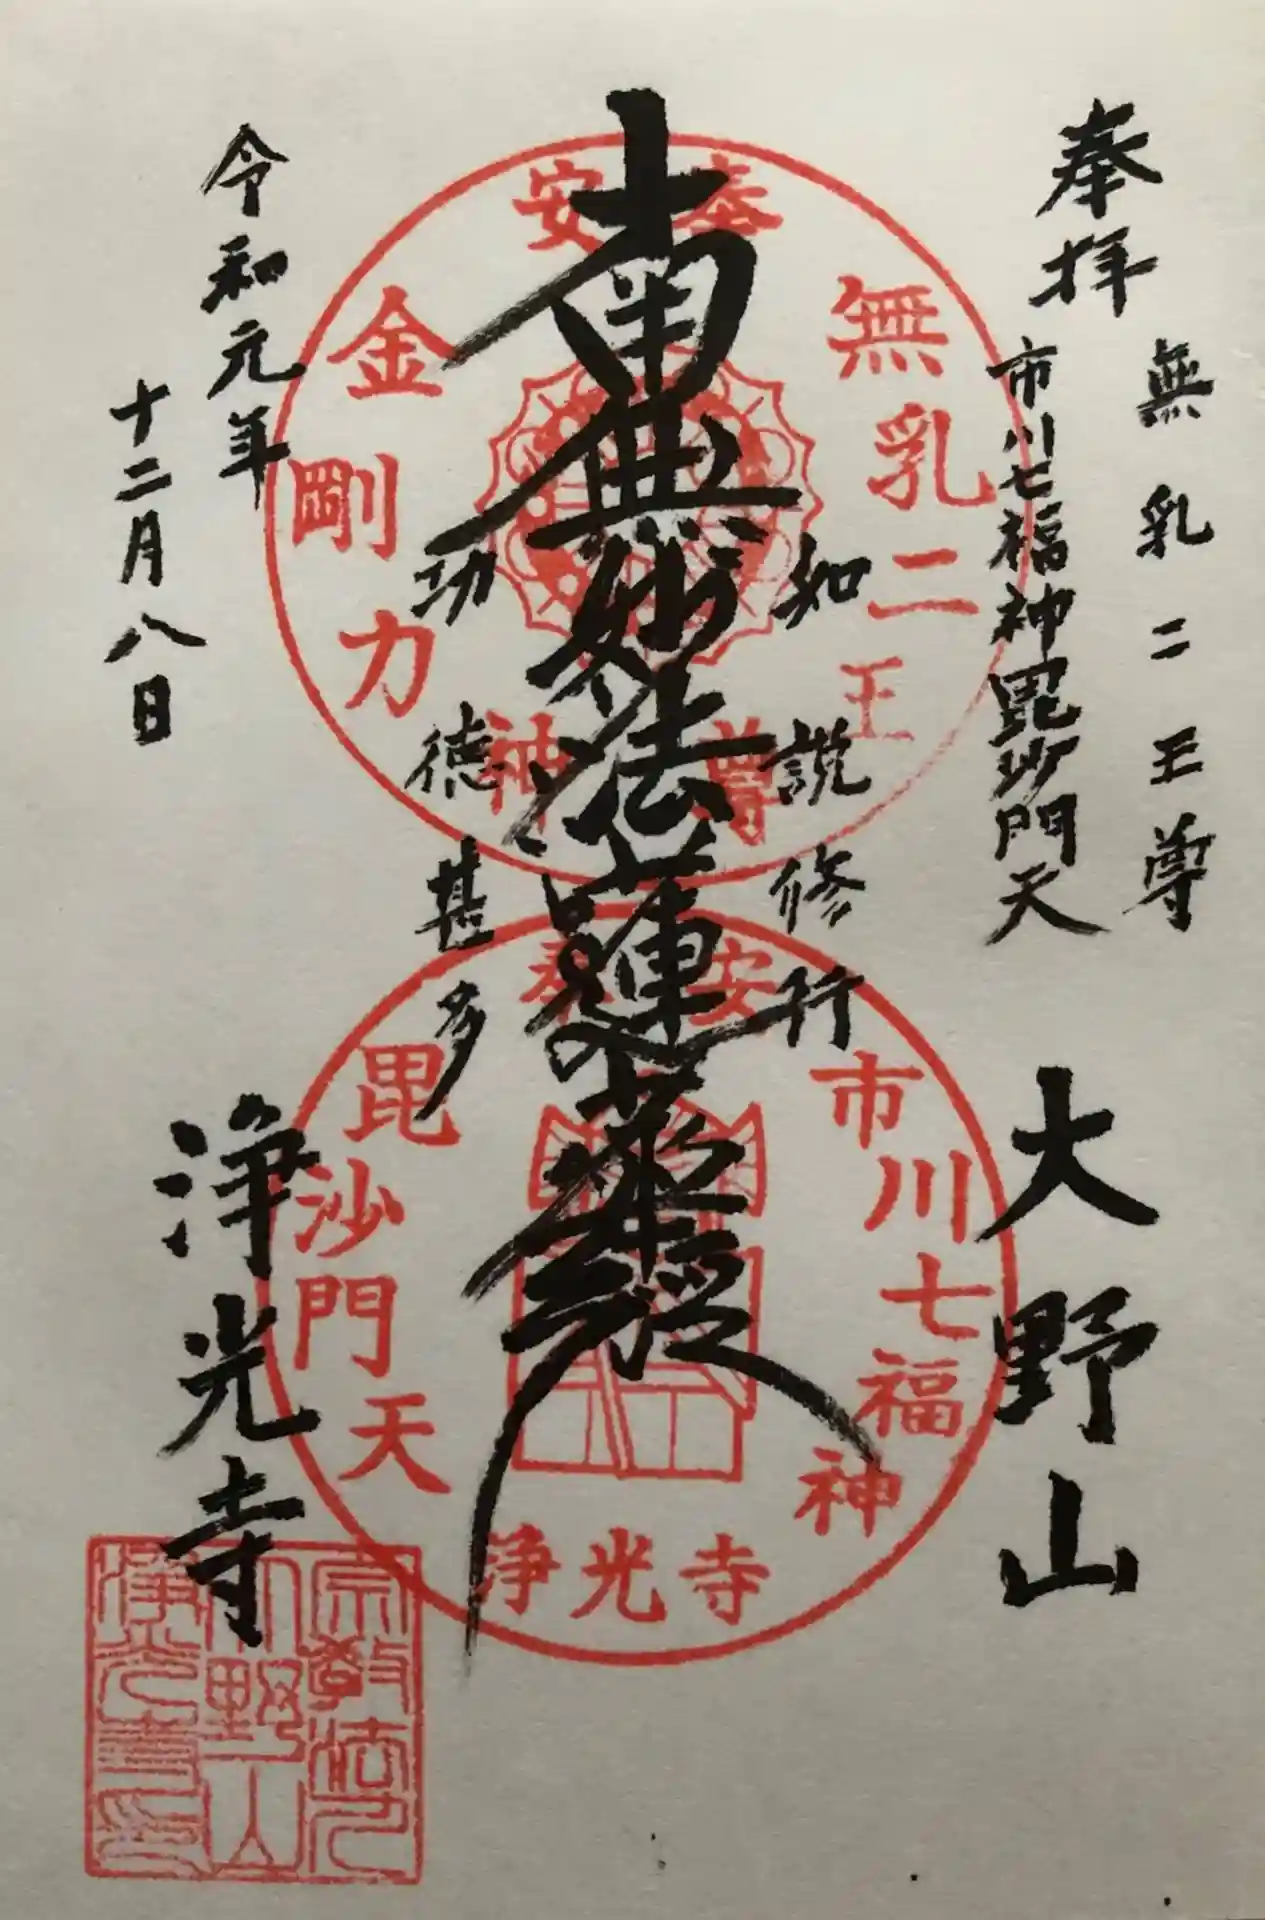 奉拝
無乳二王尊
市川七福神毘沙門天
大野山
如説修行
南無妙法蓮華経
功徳甚多
令和元年
十二月八日
浄光寺
奉安
無乳二王尊
金剛力神
奉安
市川七福神
毘沙門天
浄光寺
宗教法人
大野山
浄光寺印